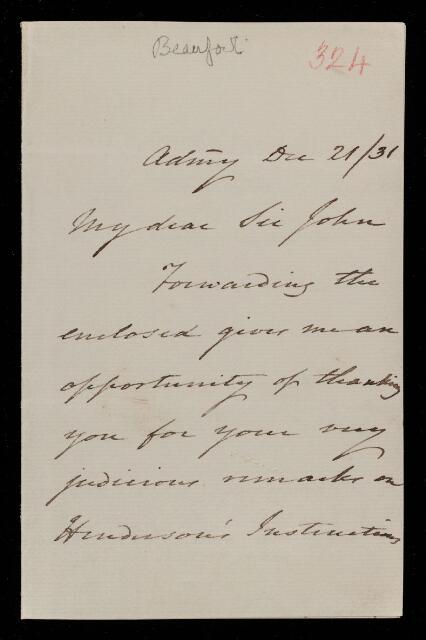 Beaufort
324
Admty Dec 21/31
My dear Sir John
Forwarding the
enclosed gives me an
opportunity of thanking
you for your very
judicious remarks on
Henderson's Instructions